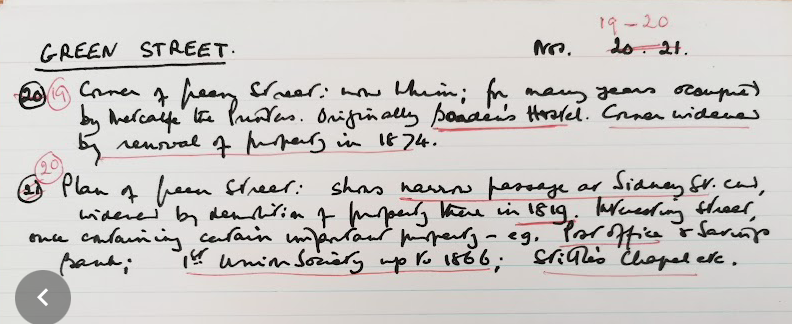 19-20
GREEN STREET. Nos. 20. 21.
20 19 Corner of Green Street: now Thim; for many years occupied
by Metcalfe the Printers. Originally Borden's Hostel. Corner widened
by removal of property in 1874.
20
21 Plan of Green Street: shows narrow passage at Sidney St. end,
widened by demolition of property there in 1819. Interesting street,
once containing certain important property - eg. Post office & Savings
Bank; 1st Union Society up to 1866; Stittle's Chapel etc.